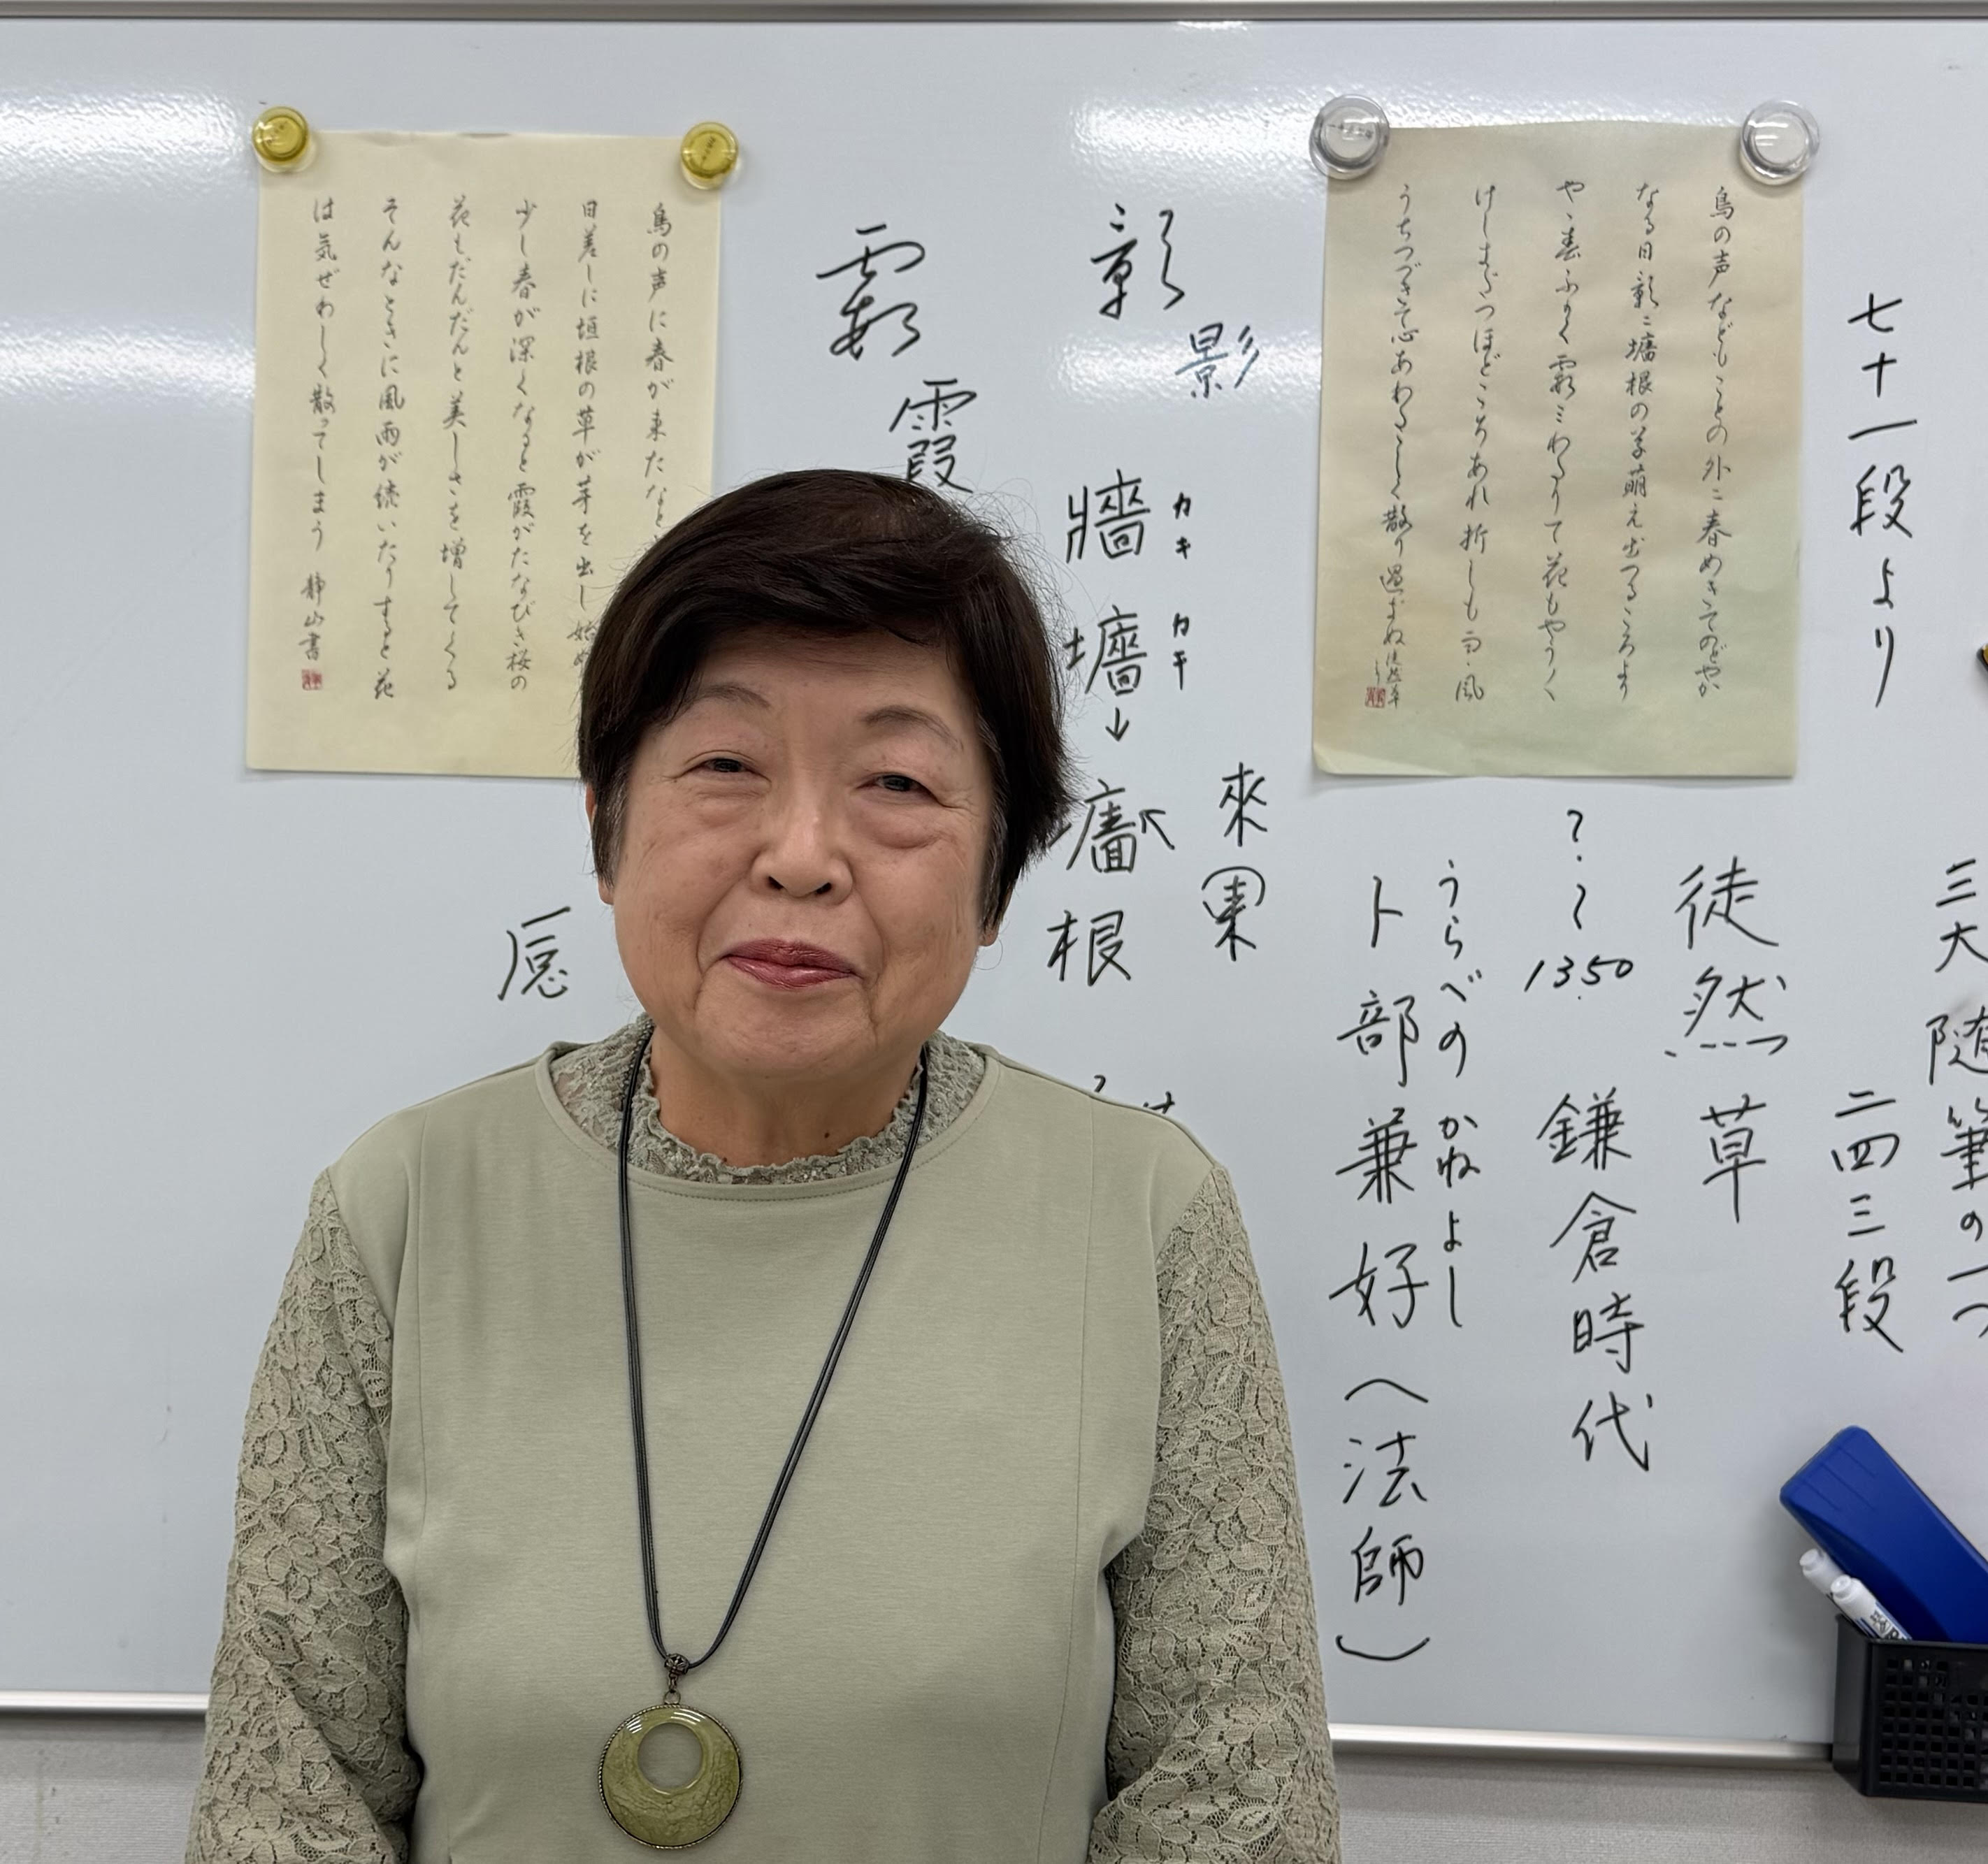 三大随筆の一つ
七十一段より
二四三段
徒然草
?~1350
鎌倉時代
うらべの かねよし
卜部兼好(法師)
鳥の声などもことの外ニ春めきてのどや可
なる日影ニ墻根の草萌え出づるころより
やゝ春ふ可く霞ミわたりて花もやうやく
けしきだつほどこそあれ折しも雨・風
うちつづきて心あわたゝしく散り過ぎぬ 徒然草より
彰
影
カキ
牆
カキ
墻
↓
根
來
霞
霞
鳥の声に春が来たなと
日差しに垣根の草が芽を出し始め
少し春が深くなると霞がたなびき桜の
花もだんだんと美しさを増してくる
そんなときに風雨が続いたりすると花
は気ぜわしく散ってしまう 静山書